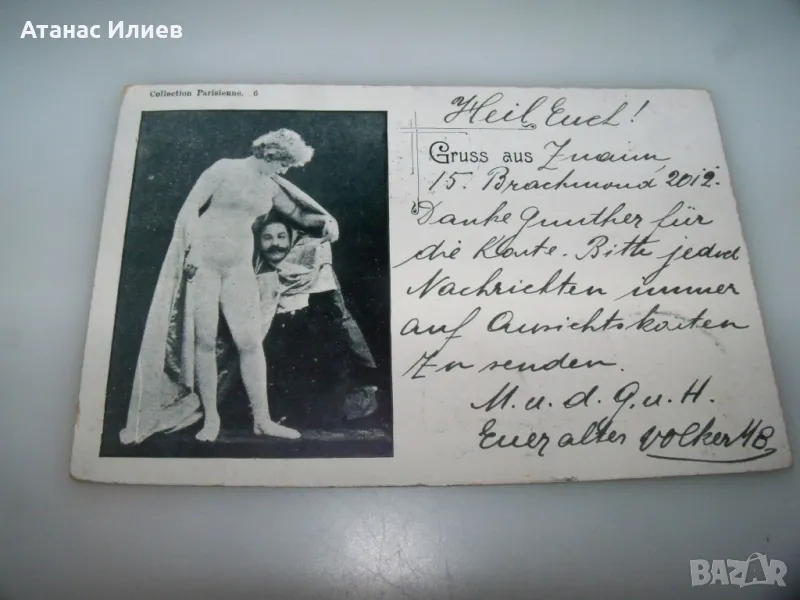 Атанас Илиев
Collection Parisienne. 6
Heil Euch!
Gruss aus Znaim,
15. Brachmond 2012.
Danke Gunther für
die Karte. Bitte jedoch
Nachrichten immer
auf Ansichtskarten
zu senden.
M. u. d. G. u. H.
Euer alter Volker
BAZAR